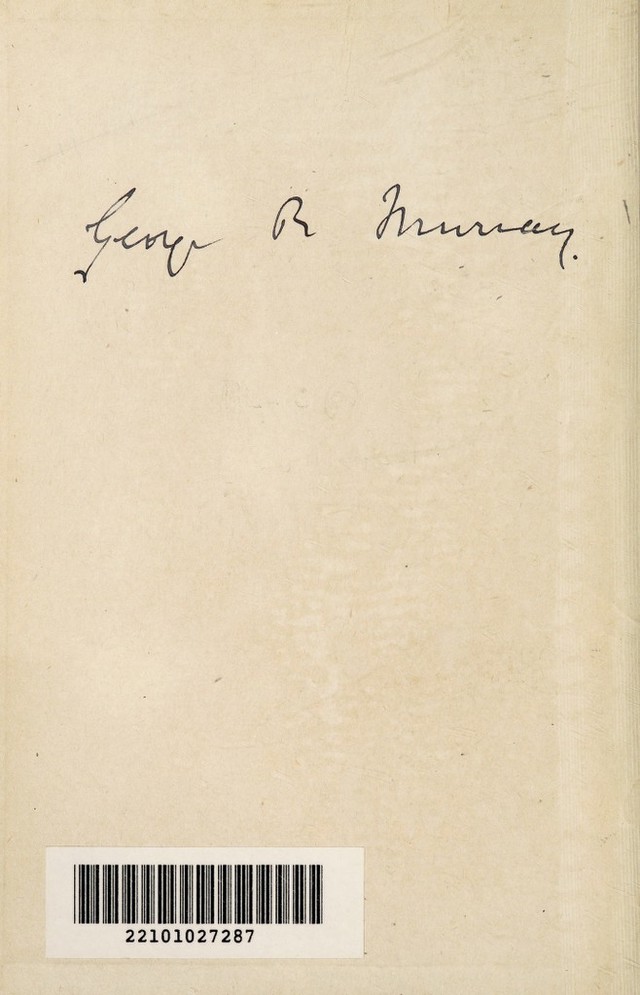 George R Murray.
22101027287